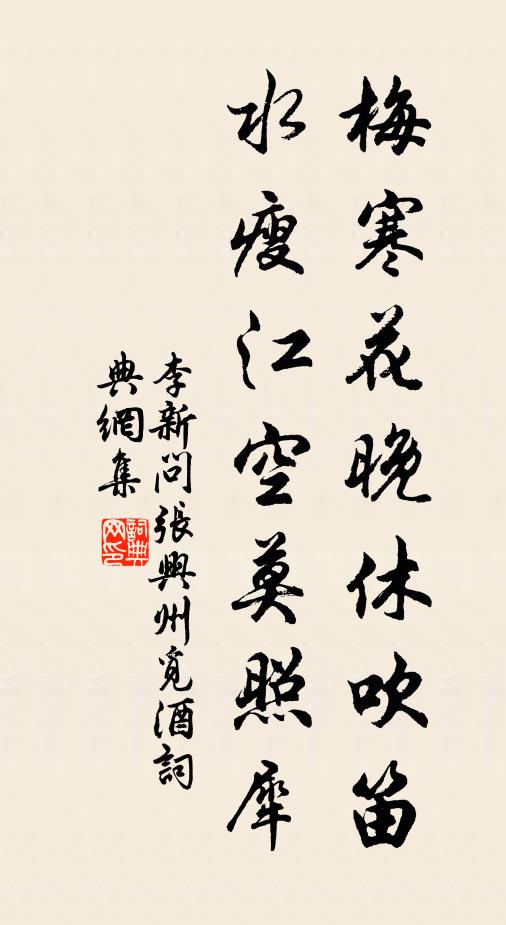 梅寒花晚休吹笛
水瘦江空莫照犀
李新問張興州覓酒詞
典網集
詞典
网印